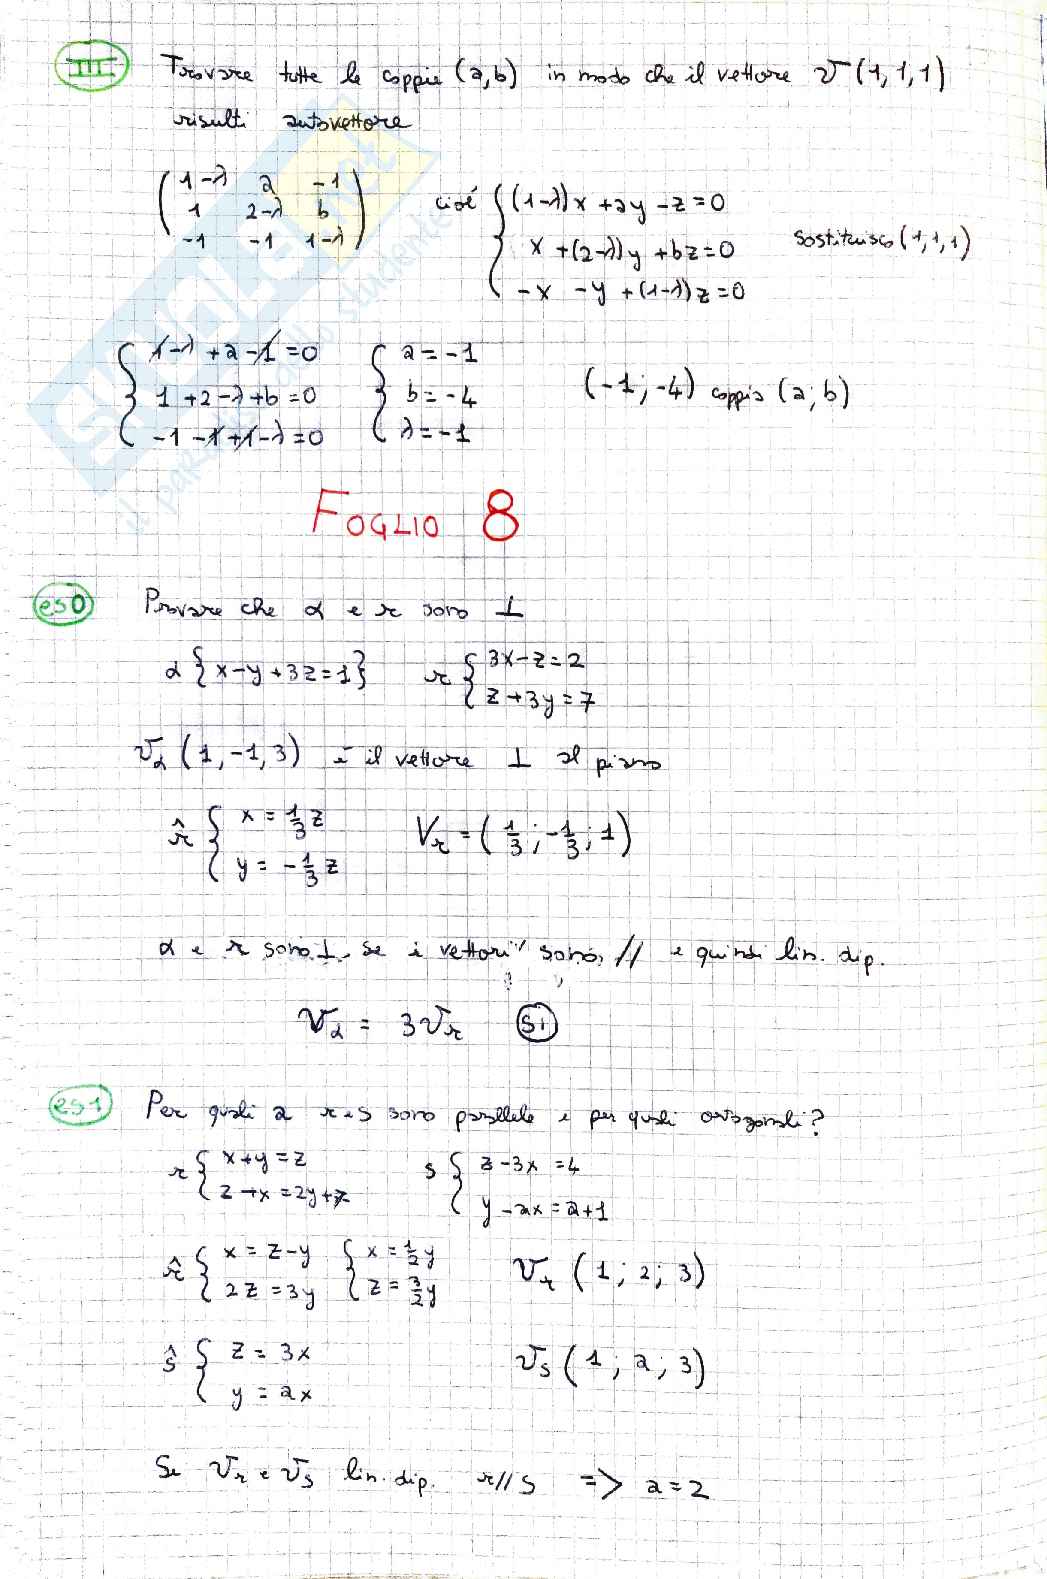 III Trovare tutte le coppie (a,b) in modo che il vettore v(1,1,1)
risulti autovettore
(1-λ a -1
1 2-λ b
-1 -1 1-λ) cioè {(1-λ)x + ay - z = 0
x + (2-λ)y + bz = 0
-x - y + (1-λ)z = 0 sostituisco (1,1,1)
{1-λ + a - 1 = 0
1 + 2 - λ + b = 0
-1 - 1 + 1 - λ = 0 {a = -1
b = -4
λ = -1 (-1; -4) coppia (a; b)
FOGLIO 8
es0 Provare che α e r sono ⊥
α {x - y + 3z = 1} r {3x - z = 2
z + 3y = 7
vα (1, -1, 3) è il vettore ⊥ al piano
r̂ {x = 1/3 z
y = -1/3 z Vr = (1/3; -1/3; 1)
α e r sono ⊥ se i vettori sono // e quindi lin. dip.
Vα = 3Vr SI
es1 Per quali a r e s sono parallele e per quali ortogonali?
r {x + y = z
z + x = 2y + z s {z - 3x = 4
y - ax = a + 1
r̂ {x = z - y
2z = 3y {x = 1/2 y
z = 3/2 y Vr (1; 2; 3)
ŝ {z = 3x
y = ax Vs (1; a; 3)
Se Vr e Vs lin. dip. r // s => a = 2
SKUOLA.net
il paradiso dello studente